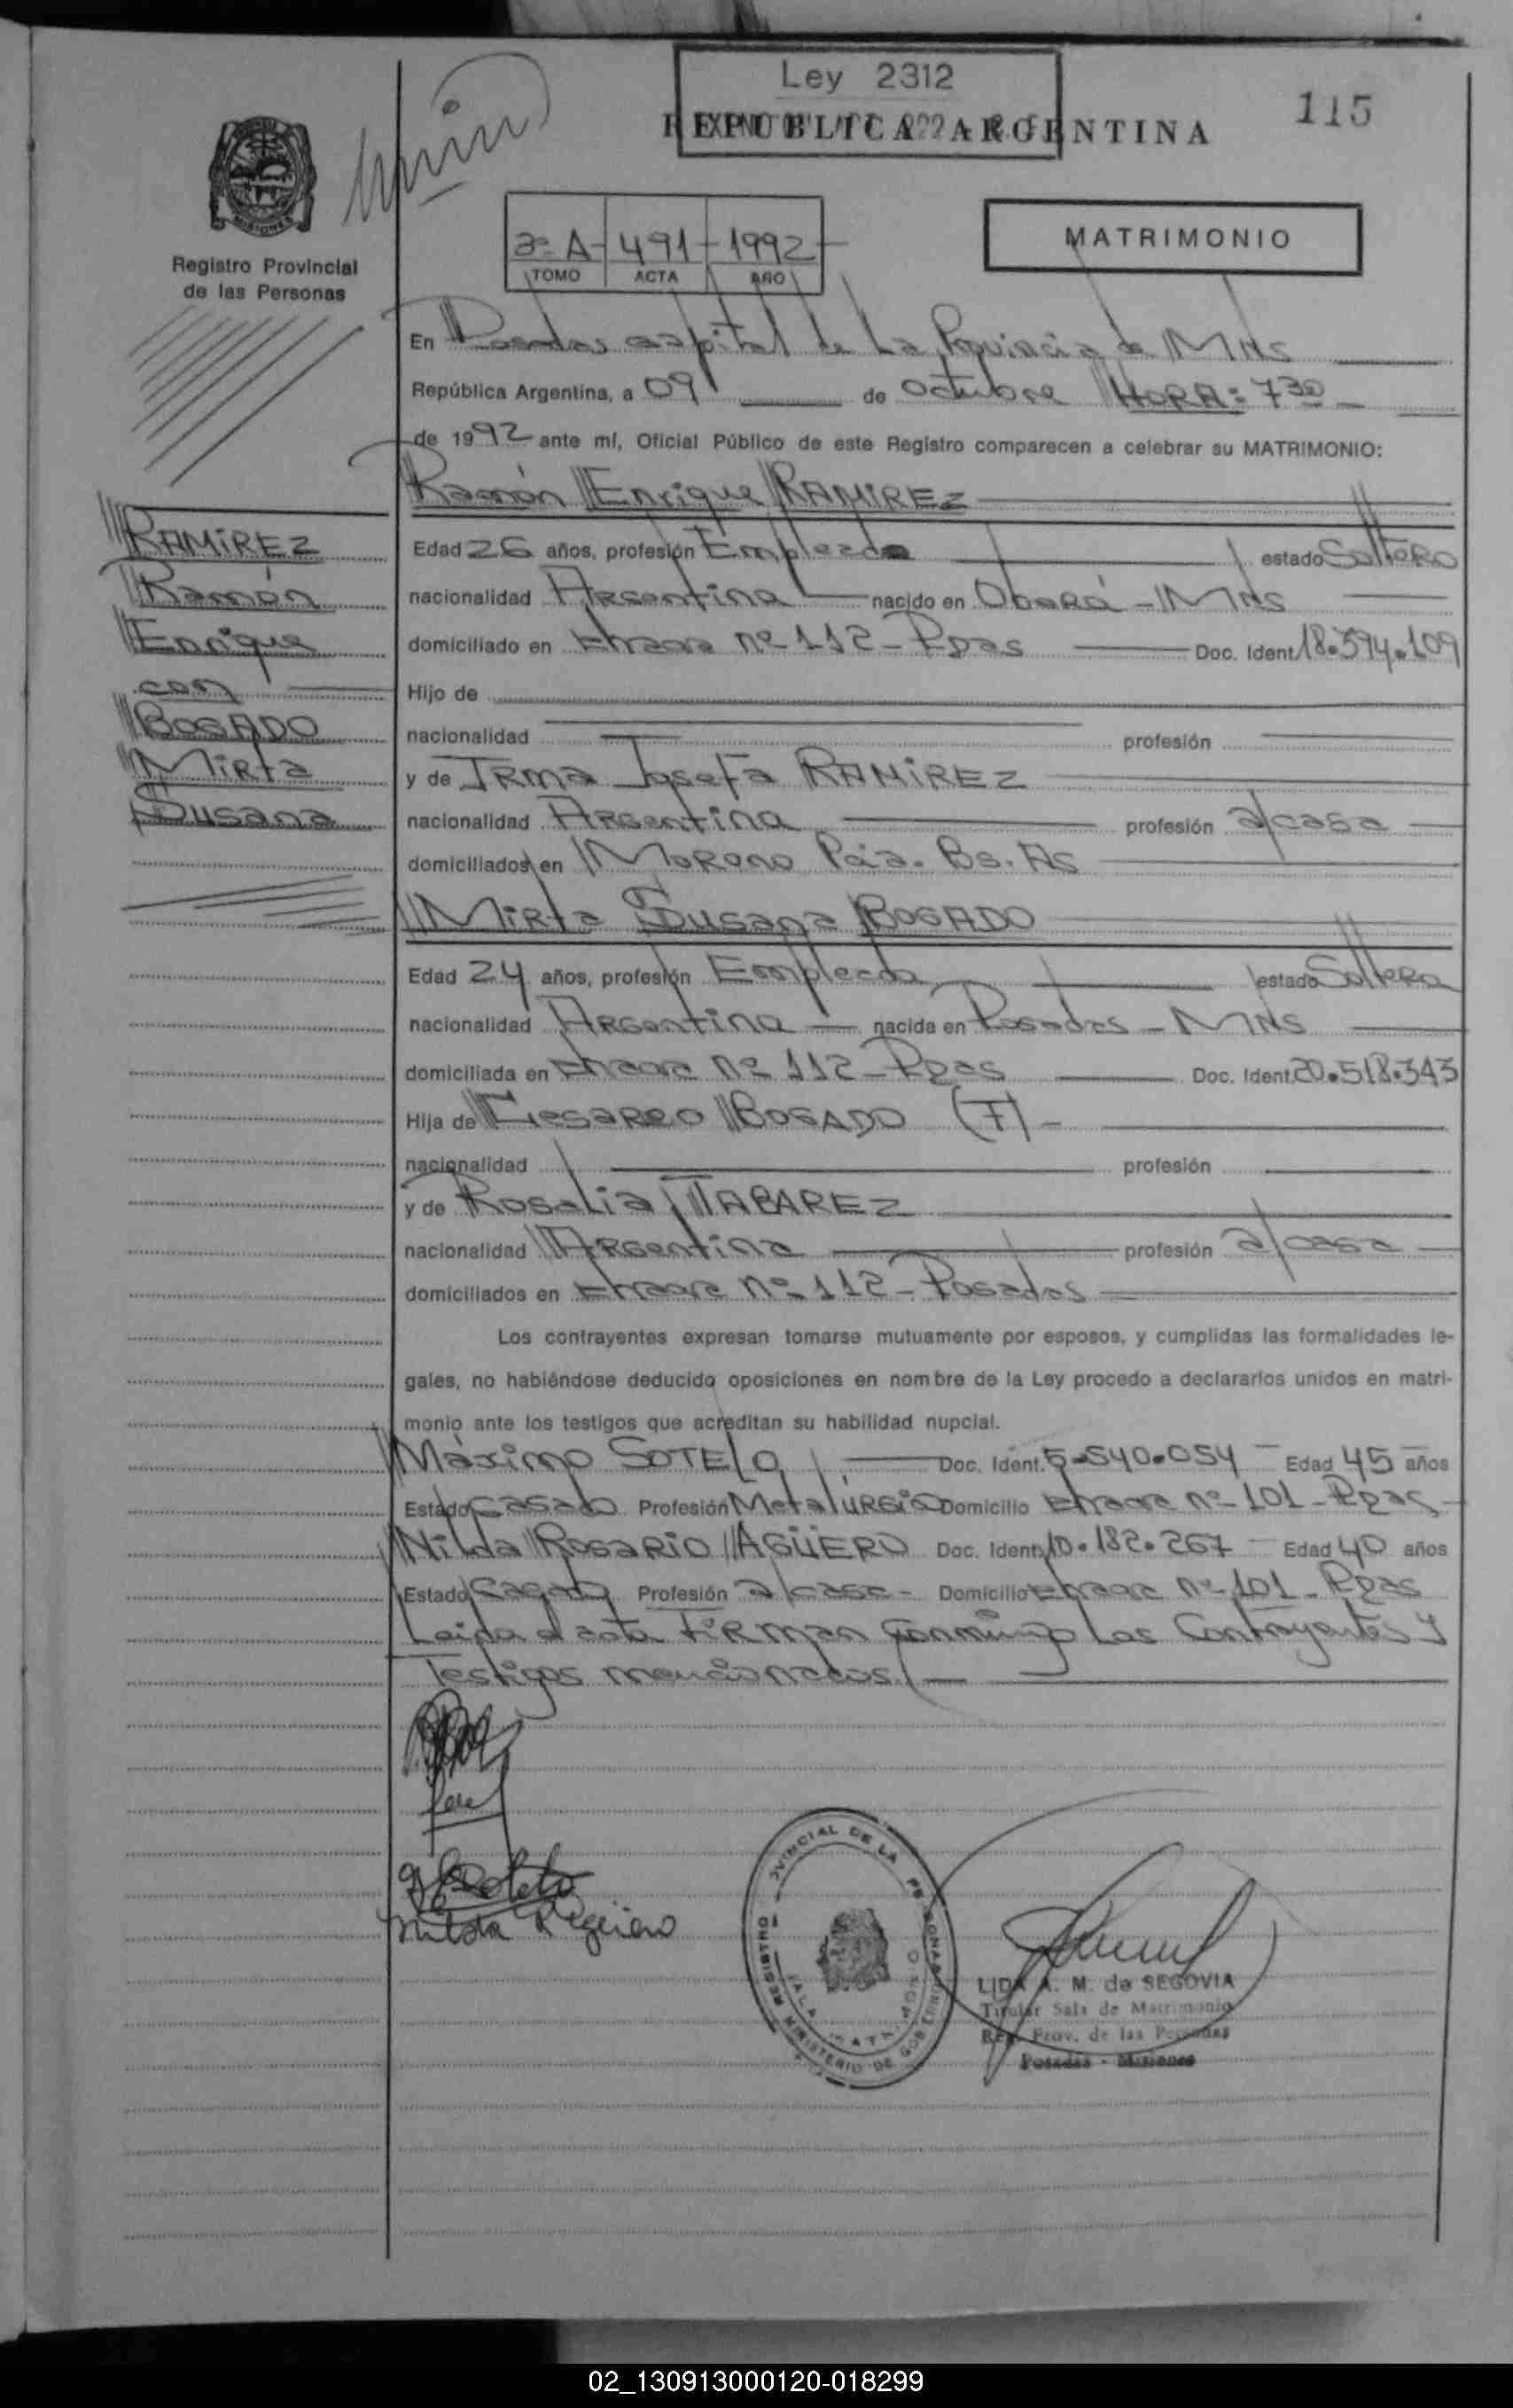 Ley 2312
115
REPUBLICA ARGENTINA
MISIONES
Registro Provincial
de las Personas
491 1992
TOMO ACTA AÑO
MATRIMONIO
En Posadas capital de La Provincia de MNS
República Argentina, a 09 de Octubre HORA: 7 30
de 1992 ante mí, Oficial Público de este Registro comparecen a celebrar su MATRIMONIO:
Ramón Enrique RAMIREZ
RAMIREZ
Ramón
Enrique
con
BOGADO
Mirta
Susana
Edad 26 años, profesión Empleado estado Soltero
nacionalidad Argentina nacido en Oberá - MNS
domiciliado en nº 112 - Pdas Doc. Ident. 18.394.109
Hijo de
nacionalidad profesión
y de Irma Josefa RAMIREZ
nacionalidad Argentina profesión a/casa
domiciliados en Moreno Pcia. Bs. As
Mirta Susana BOGADO
Edad 24 años, profesión Empleada estado Soltera
nacionalidad Argentina nacida en Posadas - MNS
domiciliada en nº 112 - Pdas Doc. Ident. 20.518.343
Hija de Cesareo BOGADO (F) -
nacionalidad profesión
y de Rosalia TABAREZ
nacionalidad Argentina profesión a/casa
domiciliados en nº 112 - Posadas
Los contrayentes expresan tomarse mutuamente por esposos, y cumplidas las formalidades le-
gales, no habiéndose deducido oposiciones en nombre de la Ley procedo a declararlos unidos en matri-
monio ante los testigos que acreditan su habilidad nupcial.
Máximo SOTELO Doc. Ident. 5.540.054 Edad 45 años
Estado Casado Profesión Metalúrgico Domicilio nº 101 - Pdas -
Nilda Rosario AGÜERO Doc. Ident. 10.182.267 Edad 40 años
Estado Casada Profesión a/casa - Domicilio nº 101 - Pdas
Leida el acta firman conmigo Los Contrayentes y
Testigos mencionados. -
Nilda R Aguero
REGISTRO PROVINCIAL DE LAS PERSONAS
MINISTERIO DE GOBIERNO
SALA MATRIMONIO
LIDA A. M. de SEGOVIA
Titular Sala de Matrimonio
Reg. Prov. de las Personas
Posadas - Misiones
02_130913000120-018299